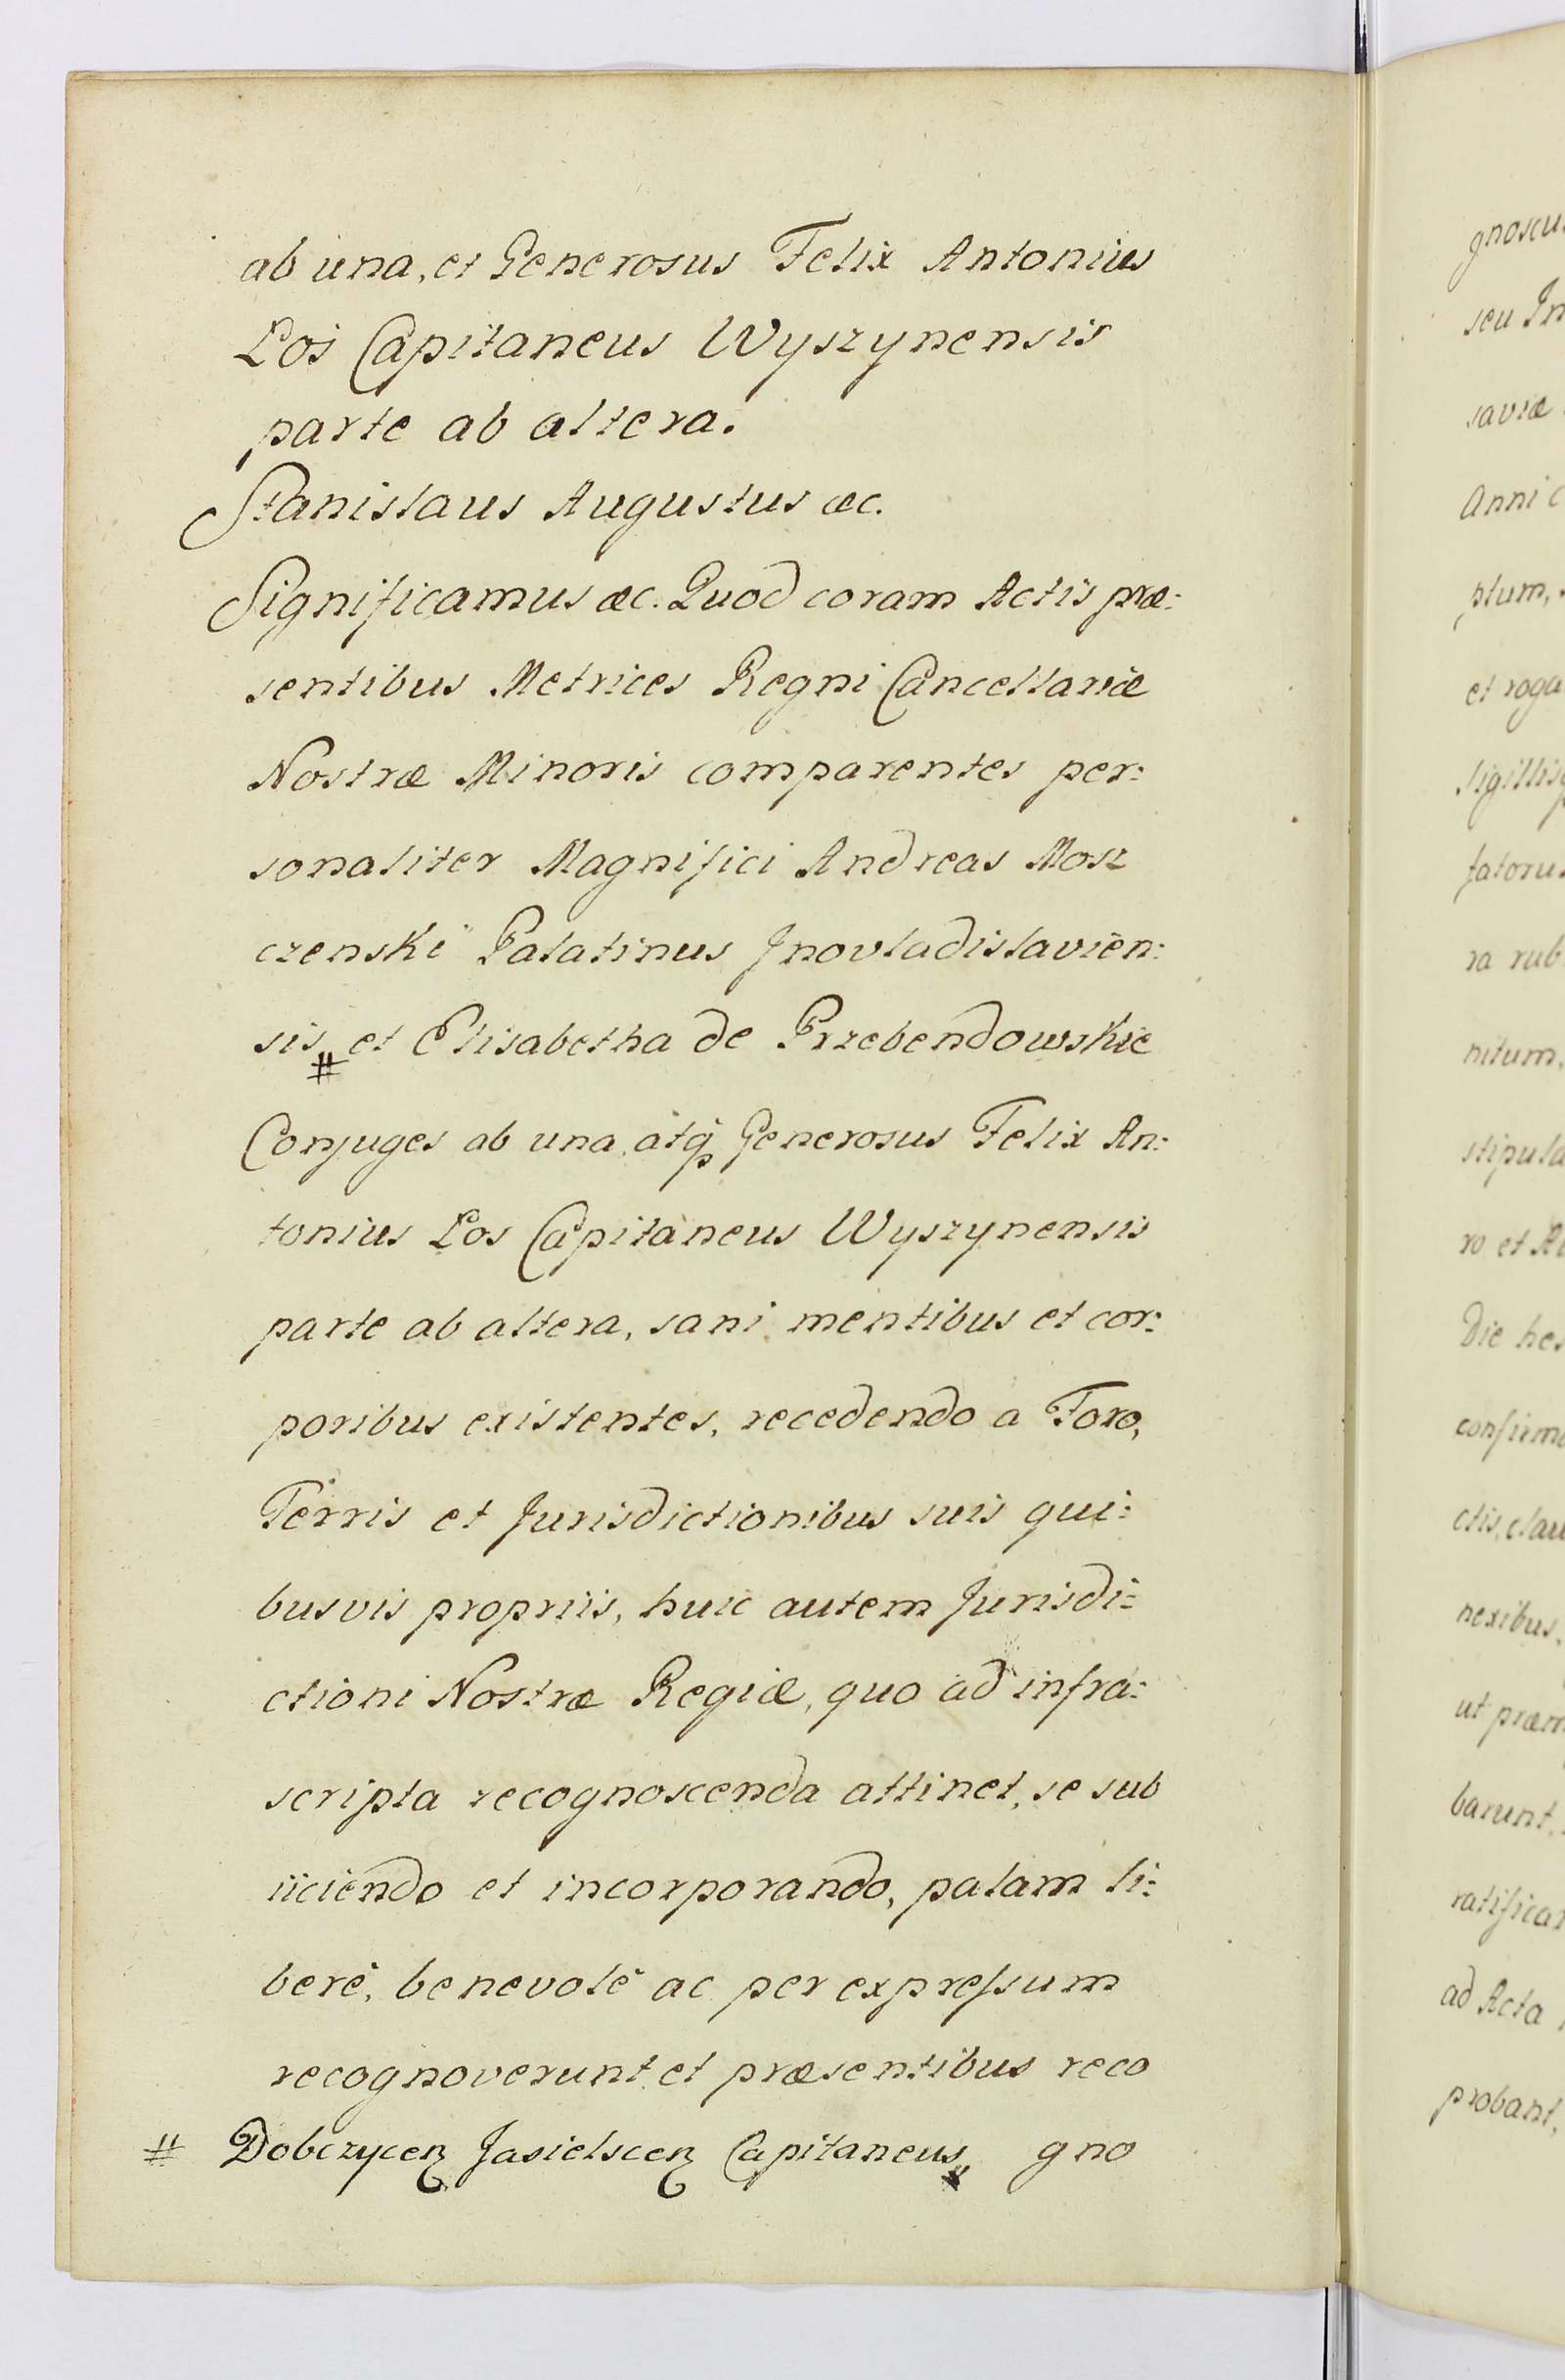 ab una, et Generosus Felix Antonius
Łos Capitaneus Wyszynensis
parte ab altera.
Stanislaus Augustus &c.
Significamus &c. Quod coram Actis præ:
sentibus Metrices Regni Cancellariæ
Nostræ Minoris comparentes per:
sonaliter Magnifici Andreas Mosz
czenski Palatinus Inovladislavien:
sis # et Elisabetha de Przebendowskie
Conjuges ab una, atq Generosus Felix An:
tonius Łos Capitaneus Wyszynensis
parte ab altera, sani mentibus et cor:
poribus existentes, recedendo a Foro,
Terris et Jurisdictionibus suis qui:
busvis propriis, huic autem Jurisdi:
ctioni Nostræ Regiæ, quo ad infra:
scripta recognoscenda attinet, se sub
iiciendo et incorporando, palam li:
berè, benevolè ac per expressum
recognoverunt et præsentibus reco
# Dobczycen Jasielscen Capitaneus gno
gnoscu
seu In
saviæ
Anni
ptum,
et roga
sigillis
fatoru
ra rub
nitum,
stipula
ro et A
Die he
confirm
ctis, clau
nexibus
ut præm
barunt,
ratifica
ad Acta
probant,